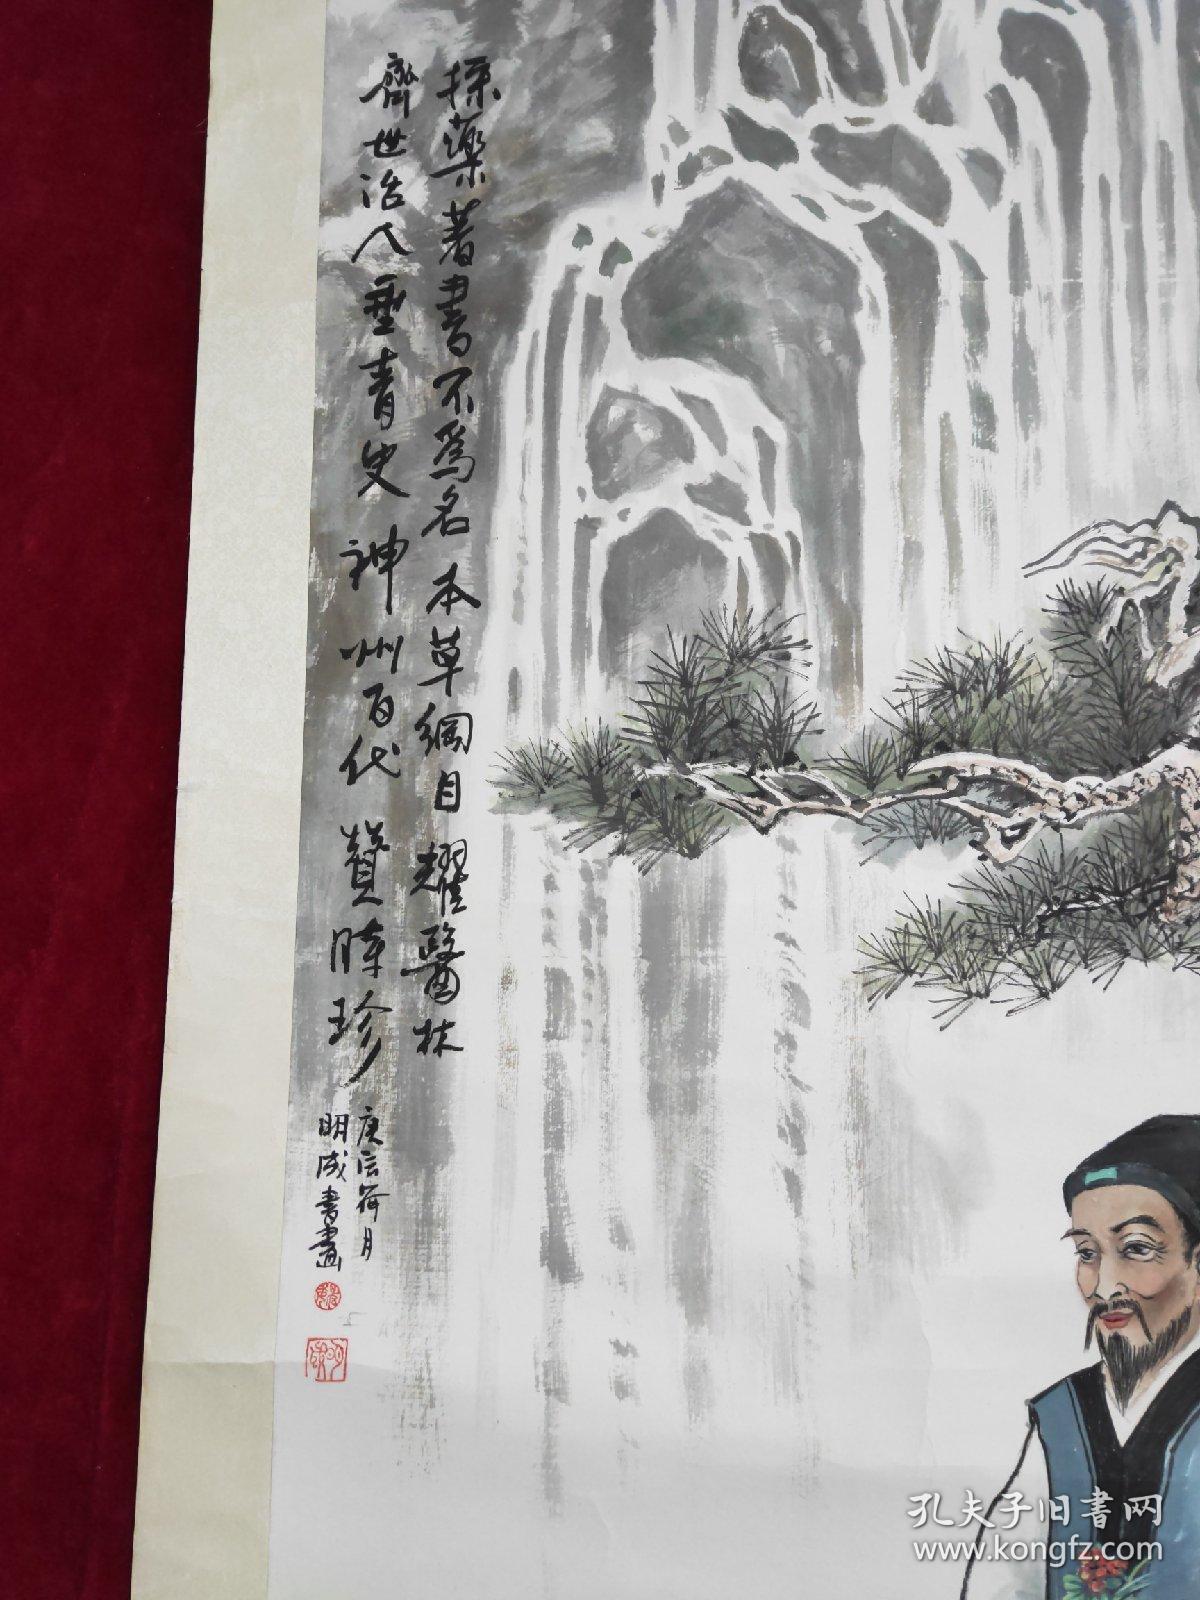 採藥著書不為名本草綱目耀醫林
齊世治人垂青史神州百代贊時珍
庚辰荷月
明成書畫
孔夫子旧書网
www.kongfz.com